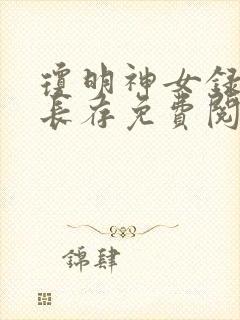 瓊明神女録
長存免費閱
錦肆